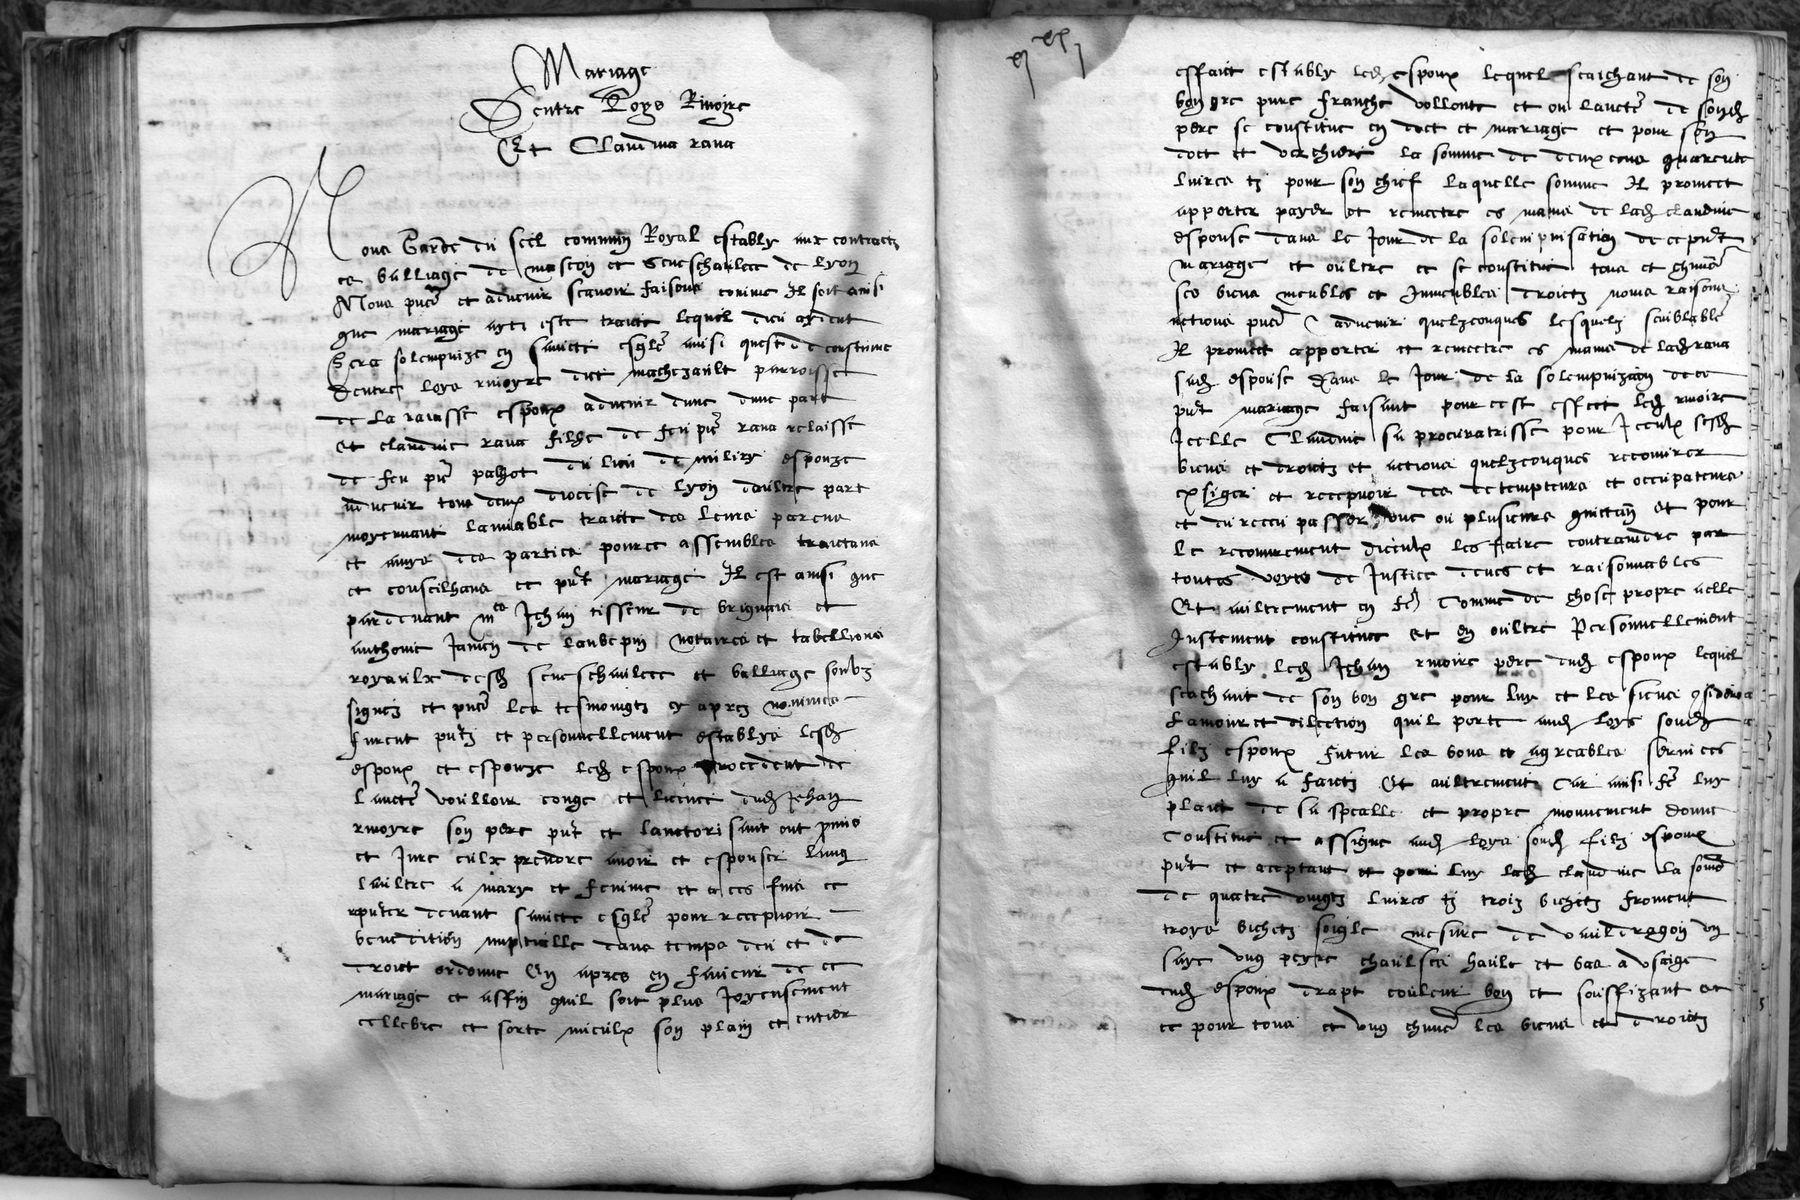 Mariage
Dentre Loys Rivoyre
Et Claudina rava
Nous Garde du seel commun Royal estably aux contractz
es balliage de mascon et seneschaulcee de lyon
Nous pnts et advenir scavoir faisons comme Il soit ainsi
que mariage ayt este traicte lequel dieu aydent
sera solempnize en saincte esglē ainsi quest de coustume
Dentre loys rivoyre dict machezault parroisse
de la rajasse espoux advenir dune part
et claudine rava filhe de feu pre rava relaisse
de feu pre pahot du lieu de milery espouze
advenir tous deux diocese de lyon daultre part
moyenant lamiable traicte des leurs parens
et amys des parties pource assembles traictans
et conseilhans ce pnt mariage Il est ainsi que
pardevant me Jehan tisseur de brignais et
anthoine Janin de laubepin notaires et tabellions
royaulx desd seneschaulcee et balliage soubz
signez et pnts les tesmoingtz cy aprez nommes
furent pntz et personnellement establys lesd
espoux et espouze led espoux procedent de
laucte voulloir conge et licence dud Jehan
rivoyre son pere pnt et lauctorisant ont promis
et Jure eulx prendre avoir et espouser lung
laultre a mary et femme et a ces fins ce
rpnter devant saincte esglē pour recepvoir
benedition nuptialle dans temps deu et de
droict ordonne En apres en faveur de ce
mariage et affin quil soit plus Joyeusement
cellebre et sorte mieulx son plain et entier
effaict estably led espoux lequel scaichant de son
bon gre pure franche vollonte et ou laucte de sond
pere se constitue en doct et mariage et pour son
doct et verchiere la somme de deux cens quarente
livres tz pour son chief laquelle somme Il promect
apporter payer et remectre es mains de lad claudine
espouse dans le Jour de la solempnisation de ce pnt
mariage et oultre ce se constitue tous et chuns
ses biens meubles et Inmeubles droictz noms raisons
actions pnts & advenir quelzconques lesquelz semblable
Il promect apporter et remectre es mains de lad rava
sad espouse dans le Jour de la solempnization de ce
pnt mariage faisant pour cest effect led rivoire
Icelle Claudine sa procuratrisse pour Iceulx sesd
biens et droictz et actions quelzconques recouvrer
exsiger et recepvoir des detempteurs et occupateurs
et du receu passer une ou plusieurs quictan et pour
le recouvrement diceulx les faire contraindre par
toutes voyes de Justice deues et raisonnables
Et aultrement en fe comme de chose propre a elle
Justement constituee et en oultre Personnellement
estably led Jehan rivoire pere dud espoux lequel
scachant de son bon gre pour luy et les siens considera
lamour et dilection quil porte aud loys soud
filz espoux futur les bons et agreables services
quil luy a faictz Et aultrement Car ainsi fe luy
plaict de sa specalle et propre mouvement donne
constitue et assigne aud loys soud filz espoux
pnt et aceptant et pour luy lad claudine la somme
de quatre vingtz livres tz troiz bichetz froment
troys bichetz soigle mesure de vauldragon en
saye ung peyre chaulses haule et bas a usaige
dud espoux drapt couleur bon et souffizant et
ce pour tous et ung chune les biens et droictz